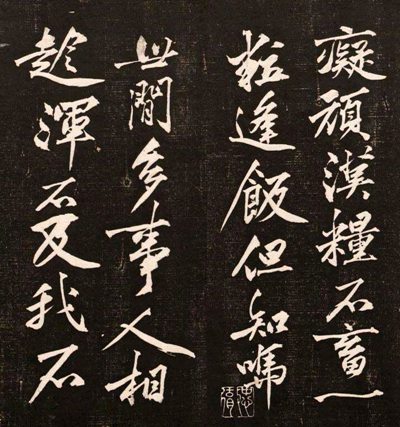 癡頑漢糧不畜一
粒逢飯但知嗎
世間多事人相
趁渾不及我不